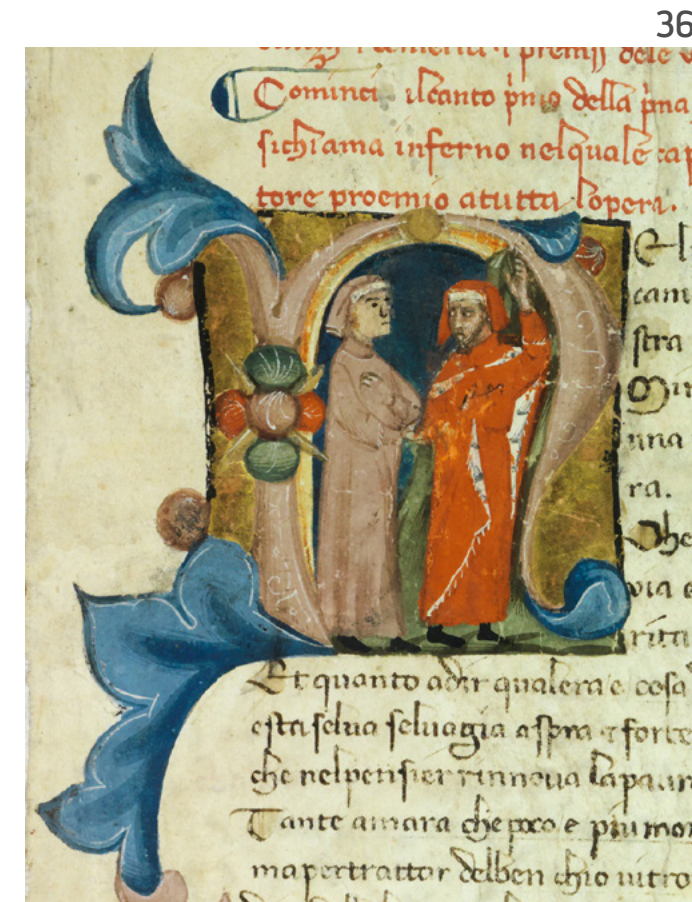 36
premij dele v
Cominci ilcanto p̄mo della p̄ma
sichiama inferno nelquale cap
tore proemio atutta lopera.
N el
cam
stra
Oi
una
ra.
Che
via e
ritta
Et quanto adir qualera e cosa
esta selua seluagia aspra & forte
che nel pensier rinnoua lapaur
Tante amara che poco e piu mor
ma pertrattar delben chio uitro